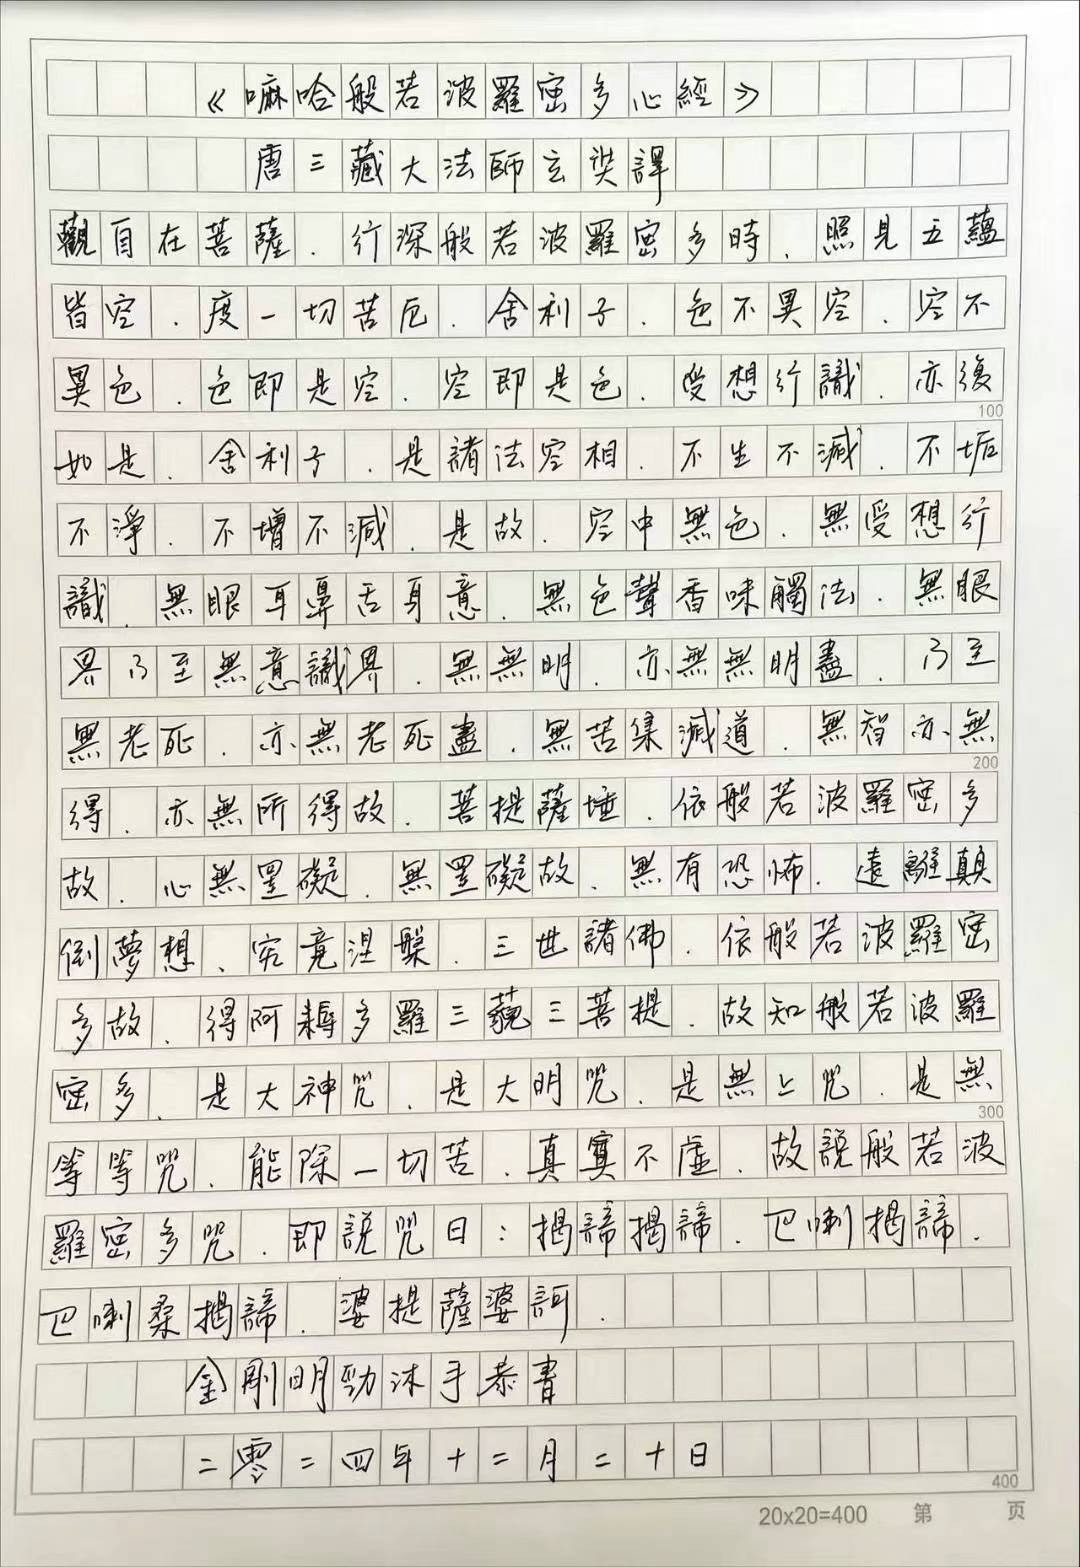 《嘛哈般若波羅密多心經》
唐三藏大法師玄奘譯
觀自在菩薩．行深般若波羅密多時．照見五蘊
皆空．度一切苦厄．舍利子．色不異空．空不
異色．色即是空．空即是色．受想行識．亦復
100
如是．舍利子．是諸法空相．不生不滅．不垢
不淨．不增不減．是故．空中無色．無受想行
識．無眼耳鼻舌身意．無色聲香味觸法．無眼
界乃至無意識界．無無明．亦無無明盡．乃至
無老死．亦無老死盡．無苦集滅道．無智亦無
200
得．亦無所得故．菩提薩埵．依般若波羅密多
故．心無罣礙．無罣礙故．無有恐怖．遠離顛
倒夢想．究竟涅槃．三世諸佛．依般若波羅密
多故．得阿耨多羅三藐三菩提．故知般若波羅
密多．是大神咒．是大明咒．是無上咒．是無
300
等等咒．能除一切苦．真實不虛．故說般若波
羅密多咒．即說咒曰：揭諦揭諦．巴喇揭諦．
巴喇桑揭諦．婆提薩婆訶．
金剛明勁沐手恭書
二零二四年十二月二十日
400
20x20=400 第 页